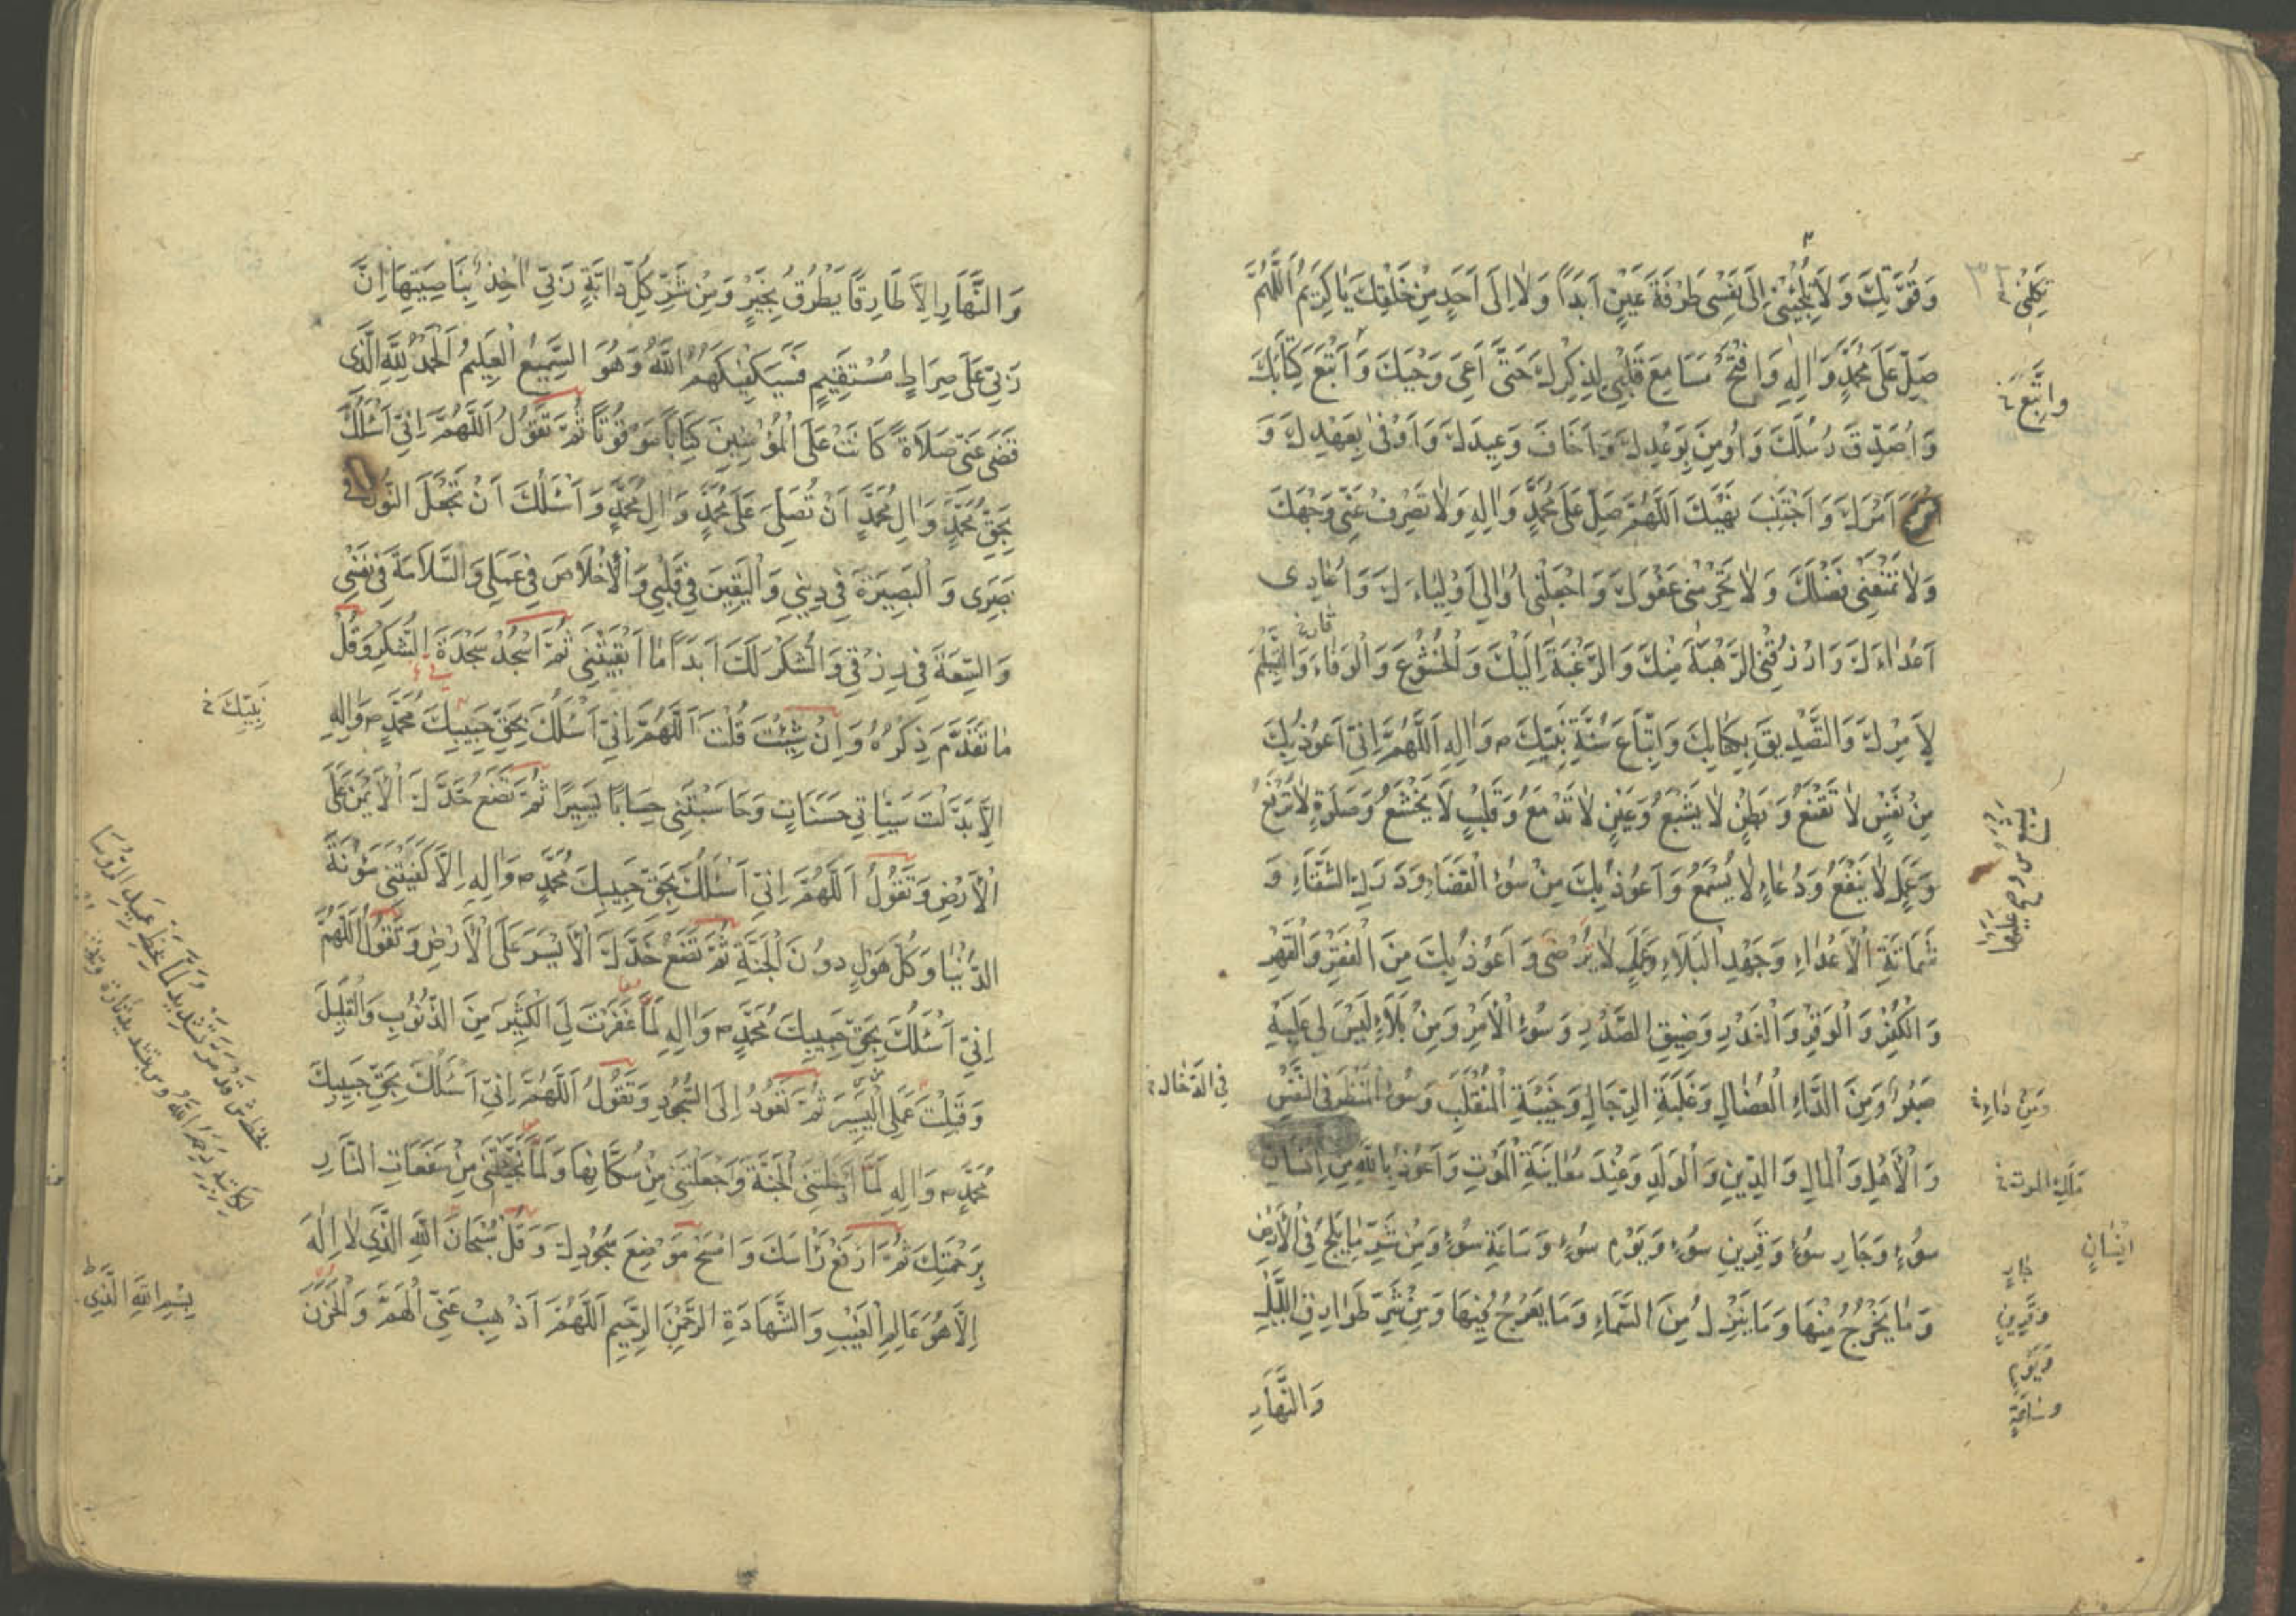 وَقُوَّتِكَ وَلَا تُلْجِئْنِي إِلَى نَفْسِي طَرْفَةَ عَيْنٍ اَبَدًا وَلَا اِلَى اَحَدٍ مِنْ خَلْقِكَ يَا كَرِيمُ اَللّٰهُمَّ
صَلِّ عَلَى مُحَمَّدٍ وَاٰلِهِ وَافْتَحْ مَسَامِعَ قَلْبِي لِذِكْرِكَ حَتَّى اَعِيَ وَحْيَكَ وَاَتَّبِعَ كِتَابَكَ
وَاُصَدِّقَ رُسُلَكَ وَاُومِنَ بِوَعْدِكَ وَاَخَافَ وَعِيدَكَ وَاُوفِيَ بِعَهْدِكَ وَ
اَمْرَكَ وَاَجْتَنِبَ نَهْيَكَ اَللّٰهُمَّ صَلِّ عَلَى مُحَمَّدٍ وَاٰلِهِ وَلَا تَصْرِفْ عَنِّي وَجْهَكَ
وَلَا تَمْنَعْنِي فَضْلَكَ وَلَا تَحْرِمْنِي عَفْوَكَ وَاجْعَلْنِي اُوَالِي اَوْلِيَاءَكَ وَاُعَادِي
اَعْدَاءَكَ وَارْزُقْنِي الرَّهْبَةَ مِنْكَ وَالرَّغْبَةَ اِلَيْكَ وَالْخُشُوعَ وَالْوَفَاءَ وَالتَّسْلِيمَ
لِاَمْرِكَ وَالتَّصْدِيقَ بِكِتَابِكَ وَاتِّبَاعَ سُنَّةِ نَبِيِّكَ ص وَاٰلِهِ اَللّٰهُمَّ اِنِّي اَعُوذُ بِكَ
مِنْ نَفْسٍ لَا تَقْنَعُ وَبَطْنٍ لَا يَشْبَعُ وَعَيْنٍ لَا تَدْمَعُ وَقَلْبٍ لَا يَخْشَعُ وَصَلٰوةٍ لَا تُرْفَعُ
وَعَمَلٍ لَا يَنْفَعُ وَدُعَاءٍ لَا يُسْمَعُ وَاَعُوذُ بِكَ مِنْ سُوءِ الْقَضَاءِ وَدَرَكِ الشَّقَاءِ وَ
شَمَاتَةِ الْاَعْدَاءِ وَجَهْدِ الْبَلَاءِ وَعَمَلٍ لَا يُرْضَى وَاَعُوذُ بِكَ مِنَ الْفَقْرِ وَالْقَهْرِ
وَالْكُفْرِ وَالْوَقْرِ وَالْغَدْرِ وَضِيقِ الصَّدْرِ وَسُوءِ الْاَمْرِ وَمِنْ بَلَاءٍ لَيْسَ لِي عَلَيْهِ
صَبْرٌ وَمِنَ الدَّاءِ الْعُضَالِ وَغَلَبَةِ الرِّجَالِ وَخَيْبَةِ الْمُنْقَلَبِ وَسُوءِ الْمَنْظَرِ فِي النَّفْسِ
وَالْاَهْلِ وَالْمَالِ وَالدِّينِ وَالْوَلَدِ وَعِنْدَ مُعَايَنَةِ الْمَوْتِ وَاَعُوذُ بِاللّٰهِ مِنْ اِنْسَانِ
سُوءٍ وَجَارِ سُوءٍ وَقَرِينِ سُوءٍ وَيَوْمِ سُوءٍ وَسَاعَةِ سُوءٍ وَمِنْ شَرِّ مَا يَلِجُ فِي الْاَرْضِ
وَمَا يَخْرُجُ مِنْهَا وَمَا يَنْزِلُ مِنَ السَّمَاءِ وَمَا يَعْرُجُ فِيهَا وَمِنْ شَرِّ طَوَارِقِ اللَّيْلِ
وَالنَّهَارِ
تَكِلْنِي
وَاَتَّبِعَ
فِي الدخال
وَمِنْ دَاءٍ
مَلَكِ الموت
اِنْسَانٍ
جَارٍ
وَقَرِينٍ
وَيَوْمٍ
وَسَاعَةٍ
وَالنَّهَارِ اِلَّا طَارِقًا يَطْرُقُ بِخَيْرٍ وَمِنْ شَرِّ كُلِّ دَابَّةٍ رَبِّي اٰخِذٌ بِنَاصِيَتِهَا اِنَّ
رَبِّي عَلَى صِرَاطٍ مُسْتَقِيمٍ فَسَيَكْفِيكَهُمُ اللّٰهُ وَهُوَ السَّمِيعُ الْعَلِيمُ اَلْحَمْدُ لِلّٰهِ الَّذِي
قَضَى عَنِّي صَلَاةً كَانَتْ عَلَى الْمُؤْمِنِينَ كِتَابًا مَوْقُوتًا ثُمَّ تَقُولُ اَللّٰهُمَّ اِنِّي اَسْئَلُكَ
بِحَقِّ مُحَمَّدٍ وَاٰلِ مُحَمَّدٍ اَنْ تُصَلِّيَ عَلَى مُحَمَّدٍ وَاٰلِ مُحَمَّدٍ وَاَسْئَلُكَ اَنْ تَجْعَلَ النُّورَ فِي
بَصَرِي وَالْبَصِيرَةَ فِي دِينِي وَالْيَقِينَ فِي قَلْبِي وَالْاِخْلَاصَ فِي عَمَلِي وَالسَّلَامَةَ فِي نَفْسِي
وَالسَّعَةَ فِي رِزْقِي وَالشُّكْرَ لَكَ اَبَدًا مَا اَبْقَيْتَنِي ثُمَّ اسْجُدْ سَجْدَةَ الشُّكْرِ وَقُلْ
مَا تَقَدَّمَ ذِكْرُهُ وَاِنْ شِئْتَ قُلْتَ اَللّٰهُمَّ اِنِّي اَسْئَلُكَ بِحَقِّ حَبِيبِكَ مُحَمَّدٍ ص وَاٰلِهِ
اِلَّا بَدَّلْتَ سَيِّئَاتِي حَسَنَاتٍ وَحَاسَبْتَنِي حِسَابًا يَسِيرًا ثُمَّ تَضَعُ خَدَّكَ الْاَيْمَنَ عَلَى
الْاَرْضِ وَتَقُولُ اَللّٰهُمَّ اِنِّي اَسْئَلُكَ بِحَقِّ حَبِيبِكَ مُحَمَّدٍ ص وَاٰلِهِ اِلَّا كَفَيْتَنِي مَؤُنَةَ
الدُّنْيَا وَكُلَّ هَوْلٍ دُونَ الْجَنَّةِ ثُمَّ تَضَعُ خَدَّكَ الْاَيْسَرَ عَلَى الْاَرْضِ وَتَقُولُ اَللّٰهُمَّ
اِنِّي اَسْئَلُكَ بِحَقِّ حَبِيبِكَ مُحَمَّدٍ ص وَاٰلِهِ لَمَّا غَفَرْتَ لِيَ الْكَثِيرَ مِنَ الذُّنُوبِ وَالْقَلِيلَ
وَقَبِلْتَ عَمَلِيَ الْيَسِيرَ ثُمَّ تَعُودُ اِلَى السُّجُودِ وَتَقُولُ اَللّٰهُمَّ اِنِّي اَسْئَلُكَ بِحَقِّ حَبِيبِكَ
مُحَمَّدٍ ص وَاٰلِهِ لَمَّا اَدْخَلْتَنِي الْجَنَّةَ وَجَعَلْتَنِي مِنْ سُكَّانِهَا وَلَمَّا نَجَّيْتَنِي مِنْ سَفَعَاتِ النَّارِ
بِرَحْمَتِكَ ثُمَّ ارْفَعْ رَاْسَكَ وَامْسَحْ مَوْضِعَ سُجُودِكَ وَقُلْ سُبْحَانَ اللّٰهِ الَّذِي لَا اِلٰهَ
اِلَّا هُوَ عَالِمِ الْغَيْبِ وَالشَّهَادَةِ الرَّحْمٰنِ الرَّحِيمِ اَللّٰهُمَّ اَذْهِبْ عَنِّي الْهَمَّ وَالْحَزَنَ
نَبِيِّكَ
بِسْمِ اللّٰهِ الَّذِي